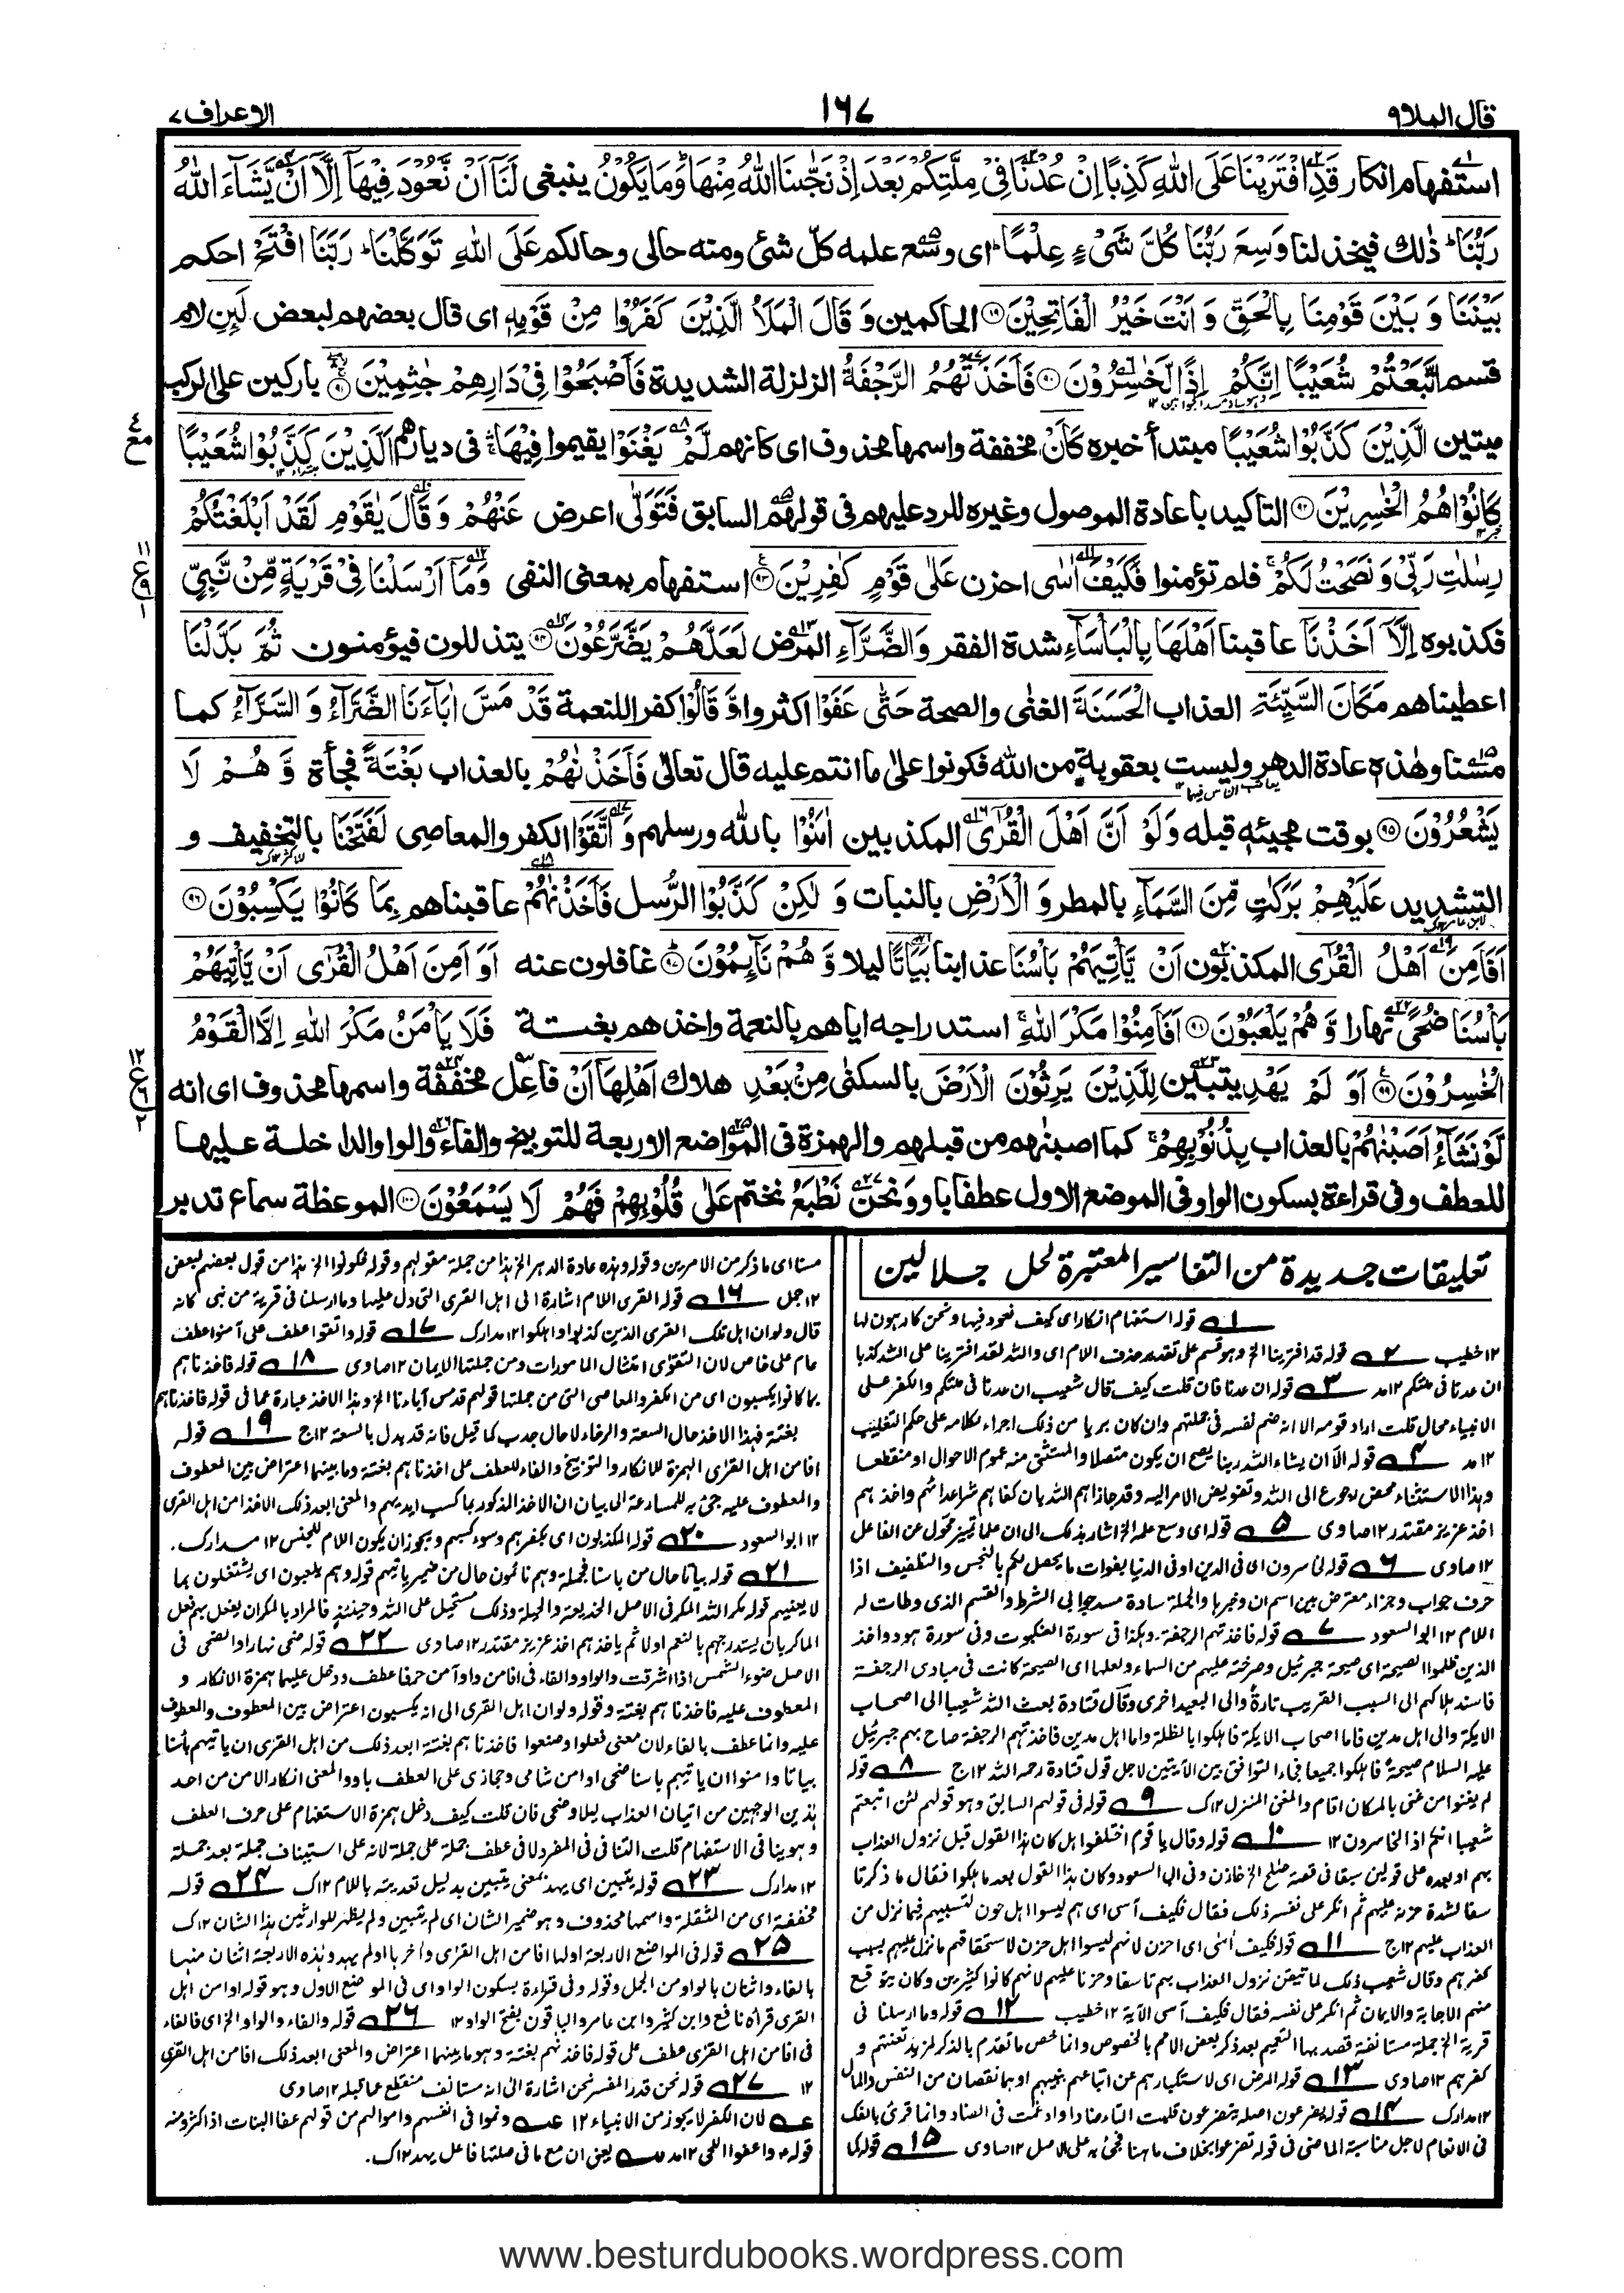 قال الملا ٩
١٦٧
الاعراف ٧
استفهام انكار قَدِ افْتَرَيْنَا عَلَى اللهِ كَذِبًا اِنْ عُدْنَا فِيْ مِلَّتِكُمْ بَعْدَ اِذْ نَجّٰىنَا اللهُ مِنْهَا وَمَا يَكُوْنُ ينبغى لَنَا اَنْ نَّعُوْدَ فِيْهَا اِلَّا اَنْ يَّشَآءَ اللهُ
رَبُّنَا ذٰلك فيخذلنا وَسِعَ رَبُّنَا كُلَّ شَيْءٍ عِلْمًا اى وسع علمه كل شئ ومنه حالى وحالكم عَلَى اللهِ تَوَكَّلْنَا رَبَّنَا افْتَحْ احكم
بَيْنَنَا وَ بَيْنَ قَوْمِنَا بِالْحَقِّ وَ اَنْتَ خَيْرُ الْفَاتِحِيْنَ ٨٩ الحاكمين وَ قَالَ الْمَلَاُ الَّذِيْنَ كَفَرُوْا مِنْ قَوْمِهٖ اى قال بعضهم لبعض لَئِنِ لام
قسم اتَّبَعْتُمْ شُعَيْبًا اِنَّكُمْ اِذًا لَّخٰسِرُوْنَ ٩٠ فَاَخَذَتْهُمُ الرَّجْفَةُ الزلزلة الشديدة فَاَصْبَحُوْا فِيْ دَارِهِمْ جٰثِمِيْنَ ٩١ باركين على الركب
ميتين الَّذِيْنَ كَذَّبُوْا شُعَيْبًا مبتدأ خبره كَاَنْ مخففة واسمها محذوف اى كانهم لَّمْ يَغْنَوْا يقيموا فِيْهَا فى ديارهم اَلَّذِيْنَ كَذَّبُوْا شُعَيْبًا
كَانُوْا هُمُ الْخٰسِرِيْنَ ٩٢ التاكيد باعادة الموصول وغيره للرد عليهم فى قولهم السابق فَتَوَلّٰى اعرض عَنْهُمْ وَ قَالَ يٰقَوْمِ لَقَدْ اَبْلَغْتُكُمْ
رِسٰلٰتِ رَبِّيْ وَ نَصَحْتُ لَكُمْ فلم تؤمنوا فَكَيْفَ اٰسٰى احزن عَلٰى قَوْمٍ كٰفِرِيْنَ ٩٣ استفهام بمعنى النفى وَمَا اَرْسَلْنَا فِيْ قَرْيَةٍ مِّنْ نَّبِيٍّ
فكذبوه اِلَّا اَخَذْنَا عاقبنا اَهْلَهَا بِالْبَاْسَآءِ شدة الفقر وَالضَّرَّآءِ المرض لَعَلَّهُمْ يَضَّرَّعُوْنَ ٩٤ يتذللون فيؤمنون ثُمَّ بَدَّلْنَا
اعطيناهم مَكَانَ السَّيِّئَةِ العذاب الْحَسَنَةَ الغنٰى والصحة حَتّٰى عَفَوْا اكثروا وَّ قَالُوْا كفرا للنعمة قَدْ مَسَّ اٰبَآءَنَا الضَّرَّآءُ وَ السَّرَّآءُ كما
مسنا وهٰذه عادة الدهر وليست بعقوبة من الله فكونوا على ما انتم عليه قال تعالٰى فَاَخَذْنٰهُمْ بالعذاب بَغْتَةً فجأة وَّ هُمْ لَا
يَشْعُرُوْنَ ٩٥ بوقت مجيئه قبله وَلَوْ اَنَّ اَهْلَ الْقُرٰٓى المكذبين اٰمَنُوْا بالله ورسلهم وَ اتَّقَوْا الكفر والمعاصى لَفَتَحْنَا بالتخفيف و
التشديد عَلَيْهِمْ بَرَكٰتٍ مِّنَ السَّمَآءِ بالمطر وَ الْاَرْضِ بالنبات وَ لٰكِنْ كَذَّبُوْا الرسل فَاَخَذْنٰهُمْ عاقبناهم بِمَا كَانُوْا يَكْسِبُوْنَ ٩٦
اَفَاَمِنَ اَهْلُ الْقُرٰٓى المكذبون اَنْ يَّاْتِيَهُمْ بَاْسُنَا عذابنا بَيَاتًا ليلا وَّ هُمْ نَآئِمُوْنَ ٩٧ غافلون عنه اَوَ اَمِنَ اَهْلُ الْقُرٰٓى اَنْ يَّاْتِيَهُمْ
بَاْسُنَا ضُحًى نهارا وَّ هُمْ يَلْعَبُوْنَ ٩٨ اَفَاَمِنُوْا مَكْرَ اللهِ استدراجه اياهم بالنعمة واخذهم بغتة فَلَا يَاْمَنُ مَكْرَ اللهِ اِلَّا الْقَوْمُ
الْخٰسِرُوْنَ ٩٩ اَوَ لَمْ يَهْدِ يتبين لِلَّذِيْنَ يَرِثُوْنَ الْاَرْضَ بالسكنٰى مِنْ بَعْدِ هلاك اَهْلِهَا اَنْ فاعل مخففة واسمها محذوف اى انه
لَّوْ نَشَآءُ اَصَبْنٰهُمْ بالعذاب بِذُنُوْبِهِمْ كما اصبنٰهم من قبلهم والهمزة فى المواضع الاربعة للتوبيخ والفاء والواو الداخلة عليها
للعطف وفى قراءة بسكون الواو فى الموضع الاول عطفا باو وَ نحن نَطْبَعُ نختم عَلٰى قُلُوْبِهِمْ فَهُمْ لَا يَسْمَعُوْنَ ١٠٠ الموعظة سماع تدبر
تعليقات جديدة من التفاسير المعتبرة لحل جلالين
١ قوله استفهام انكار اى كيف نعود فيها ونحن كارهون لها
١٢ خطيب ٢ قوله قد افترينا الخ وهو قسم على تقدير حذف اللام اى والله لقد افترينا على الله كذبا
ان عدنا فى ملتكم ١٢ مد ٣ قوله ان عدنا فان قلت كيف قال شعيب ان عدنا فى ملتكم والكفر على
الانبياء محال قلت اراد قومه الا انه ضم نفسه فى جملتهم وان كان بريا من ذلك اجراء لكلامه على حكم التغليب
١٢ مد ٤ قوله الا ان يشاء الله ربنا يصح ان يكون متصلا والمستثنى منه عموم الاحوال او منقطعا
وهذا الاستثناء محض رجوع الى الله وتفويض الامر اليه وقد جازاهم الله بان كفاهم شر اعدائهم واخذهم
اخذ عزيز مقتدر ١٢ صاوى ٥ قوله اى وسع علمه الخ اشار بذلك الى ان علما تمييز محول عن الفاعل
١٢ صاوى ٦ قوله لخاسرون اى فى الدين او فى الدنيا بفوات ما يحصل لكم بالبخس والتطفيف اذا
حرف جواب وجزاء معترض بين اسم ان وخبرها والجملة سادة مسد جوابى الشرط والقسم الذى وطات له
اللام ١٢ ابو السعود ٧ قوله فاخذتهم الرجفة وهكذا فى سورة العنكبوت وفى سورة هود واخذ
الذين ظلموا الصيحة اى صيحة جبرئيل وصرخته عليهم من السماء ولعلها اى الصيحة كانت فى مبادى الرجفة
فاسند هلاكهم الى السبب القريب تارة والى البعيد اخرى وقال قتادة بعث الله شعيبا الى اصحاب
الايكة والى اهل مدين فاما اصحاب الايكة فاهلكوا بالظلة واما اهل مدين فاخذتهم الرجفة صاح بهم جبرئيل
عليه السلام صيحة فاهلكوا جميعا فى التوافق بين الآيتين لاجل قول قتادة رحمه الله ١٢ ج ٨ قوله
لم يغنوا من غنى بالمكان اقام والمغنى المنزل ١٢ ك ٩ قوله فى قولهم السابق وهو قولهم لئن اتبعتم
شعيبا انكم اذا لخاسرون ١٢ ١٠ قوله وقال يا قوم اختلفوا هل كان هذا القول قبل نزول العذاب
بهم او بعده على قولين سبقا فى قصة صالح الخ خازن وفى ابى السعود وكان هذا القول بعد ما هلكوا فقال ما ذكر تا
سفا لشدة حزنه عليهم ثم انكر على نفسه ذلك فقال فكيف آسى اى هم ليسوا اهل حزن لتسببهم فيما نزل من
العذاب عليهم ١٢ ج ١١ قوله فكيف اٰسٰى اى احزن لانهم ليسوا اهل حزن لاستحقاقهم ما نزل عليهم بسبب
كفرهم وقال شعيب ذلك لما تيقن نزول العذاب بهم تاسفا وحزنا عليهم لانهم كانوا كثيرين وكان يتوقع
منهم الاجابة والايمان ثم انكر على نفسه فقال فكيف آسى الآية ١٢ خطيب ١٢ قوله وما ارسلنا فى
قرية الخ جملة مستانفة قصد بها التعميم بعد ذكر بعض الامم بالخصوص وانما خص ما تقدم بالذكر لمزيد تعنتهم و
كفرهم ١٢ صاوى ١٣ قوله المرض اى لاستكبارهم عن اتباع نبيهم او هما نقصان من النفس والمال
١٢ مدارك ١٤ قوله يضرعون اصله يتضرعون قلبت التاء ضادا وادغمت فى الضاد وانما قرئ بالفك
فى الانعام لاجل مناسبة الماضى فى قوله تضرعوا بخلاف ما هنا فجئ به على الاصل ١٢ صاوى ١٥ قوله كما
مسنا اى ما ذكر من الامرين وقوله وهذه عادة الدهر الخ هذا من جملة مقولهم وقوله فكونوا الخ هذا من قول بعضهم لبعض
١٢ جمل ١٦ قوله القرى اللام اشارة الى اهل القرى التى دل عليها وما ارسلنا فى قرية من نبى كانه
قال ولو ان اهل تلك القرى الذين كذبوا واهلكوا ١٢ مدارك ١٧ قوله واتقوا عطف على آمنوا عطف
عام على خاص لان التقوى امتثال المامورات ومن جملتها الايمان ١٢ صاوى ١٨ قوله فاخذناهم
بما كانوا يكسبون اى من الكفر والمعاصى التى من جملتها قولهم قد مس آباءنا الخ وهذا الاخذ عبارة عما فى قوله فاخذناهم
بغتة فهذا الاخذ حال السعة والرخاء لا حال جدب كما قيل فانه قد بدل بالسعة ١٢ ج ١٩ قوله
افامن اهل القرٰى الهمزة للانكار والتوبيخ والفاء للعطف على اخذناهم بغتة وما بينهما اعتراض بين المعطوف
والمعطوف عليه جئ به للمسارعة الى بيان ان الاخذ المذكور بما كسبت ايديهم والمعنى ابعد ذلك الاخذ امن اهل القرى
١٢ ابو السعود ٢٠ قوله المكذبون اى بكفرهم وسوء كسبهم ويجوز ان يكون اللام للجنس ١٢ مدارك.
٢١ قوله بياتا حال من باسنا فجملة وهم نائمون حال من ضمير ياتيهم قوله وهم يلعبون اى يشتغلون بما
لا يعنيهم قوله مكر الله المكر فى الاصل الخديعة والحيلة وذلك مستحيل على الله وحينئذ فالمراد بالمكر ان يفعل بهم فعل
الماكر بان يستدرجهم بالنعم اولا ثم ياخذهم اخذ عزيز مقتدر ١٢ صاوى ٢٢ قوله ضحى نهارا والضحى فى
الاصل ضوء الشمس اذا اشرقت والواو والفاء فى افامن واوأمن حرفا عطف دخل عليهما همزة الانكار و
المعطوف عليه فاخذناهم بغتة وقوله ولو ان اهل القرى الى انه يكسبون اعتراض بين المعطوف والمعطوف
عليه وانما عطف بالفاء لان معنى فعلوا وصنعوا فاخذناهم بغتة ابعد ذلك من اهل القرى ان ياتيهم باسنا
بياتا وامنوا ان ياتيهم باسنا ضحى او امن شامى وحجازى على العطف باو والمعنى انكار الامن من احد
هذين الوجهين من اتيان العذاب ليلا وضحى فان قلت كيف دخل همزة الاستفهام على حرف العطف
وهو ينافى الاستفهام قلت التنافى فى المفرد لا فى عطف جملة على جملة لانه على استيناف جملة بعد جملة
١٢ مدارك ٢٣ قوله يتبين اى يهد بمعنى يتبين بدليل تعديته باللام ١٢ ك ٢٤ قوله
مخففة اى من المثقلة واسمها محذوف وهو ضمير الشان اى لم يتبين ولم يظهر للوارثين هذا الشان ١٢ ك
٢٥ قوله فى المواضع الاربعة اولها افامن اهل القرٰى وآخرها اولم يهد وهذه الاربعة اثنان منها
بالفاء واثنان بالواو من الجمل وقوله وفى قراءة بسكون الواو اى فى الموضع الاول وهو قوله اوامن اهل
القرى قرأه نافع وابن كثير وابن عامر والباقون بفتح الواو ١٢ ٢٦ قوله والفاء والواو الخ اى فالفاء
فى افامن اهل القرٰى عطف على قوله فاخذنهم بغتة وهو ما بينهما اعتراض والمعنى ابعد ذلك افامن اهل القرٰى
١٢ ٢٧ قوله نحن قدر المفسر نحن اشارة الى انه مستانف منقطع عما قبله ١٢ صاوى
عه لان الكفر لا يجوز من الانبياء ١٢ عه ونموا فى انفسهم واموالهم من قولهم عفا النبات اذا كثر ومنه
قوله واعفوا اللحى ١٢ مد سه يعنى ان مع ما فى صلتها فاعل يهد ١٢ ك.
www.besturdubooks.wordpress.com